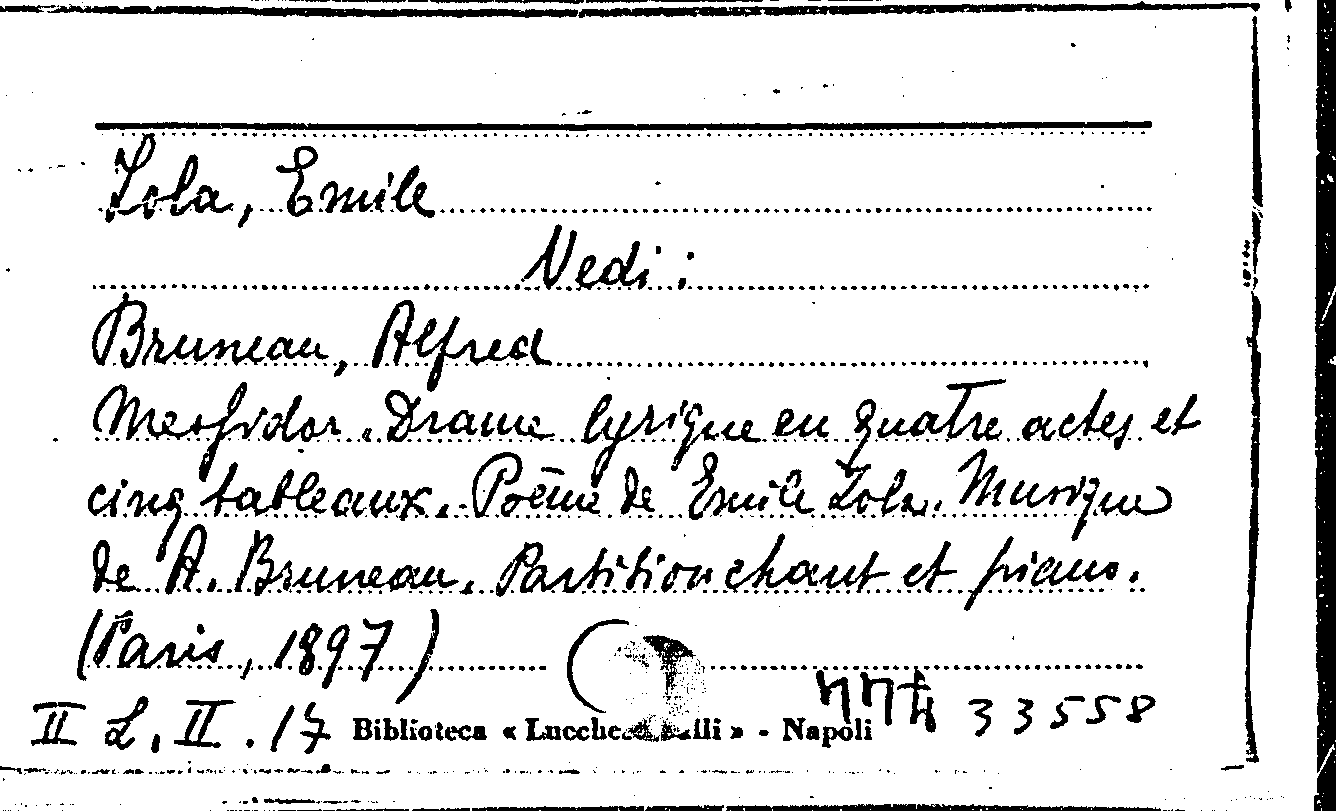 Zola, Emile
Vedi:
Bruneau, Alfred
Messidor. Drame lyrique en quatre actes et
cinq tableaux. Poème de Emile Zola. Musique
de A. Bruneau. Partition chant et piano.
(Paris, 1897)
II L. II. 17 Biblioteca « Lucchesi Palli » - Napoli 33558